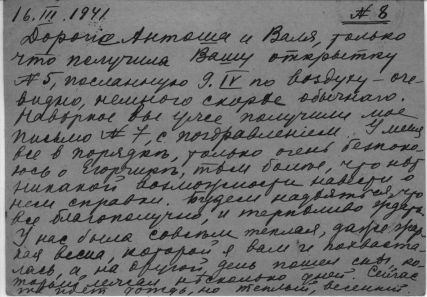 16.III.1941 № 8
Дорогие Антоша и Валя, только
что получила Вашу открытку
№5, посланную 9.IV по воздуху – оче-
видно, немного скорее обычнаго.
Наверное вы уже получили мое
письмо № 7, с поздравлением. У меня
все в порядке, только очень безпоко-
юсь о Егорушке, тем более, что нет
никакой возможности навести о
нем справки. Будем надеяться, что
все благополучно, и терпеливо ждать.
У нас была совсем теплая, даже
весна, которой я вам и похваста-
лась, а на другой день пошел снег, ко-
торый несколько дней. Сейчас
дождь, но теплый, весенний